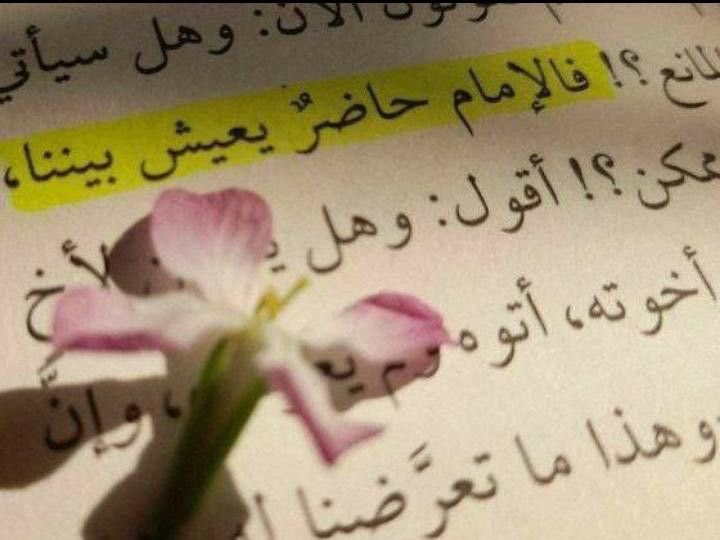 الآن: وهل سيأتي
المانع؟! فالإمام حاضرٌ يعيش بيننا،
ممكن؟! أقول: وهل
أخوته، أتوه ولم
وإنَّ
وهذا ما تعرَّضنا